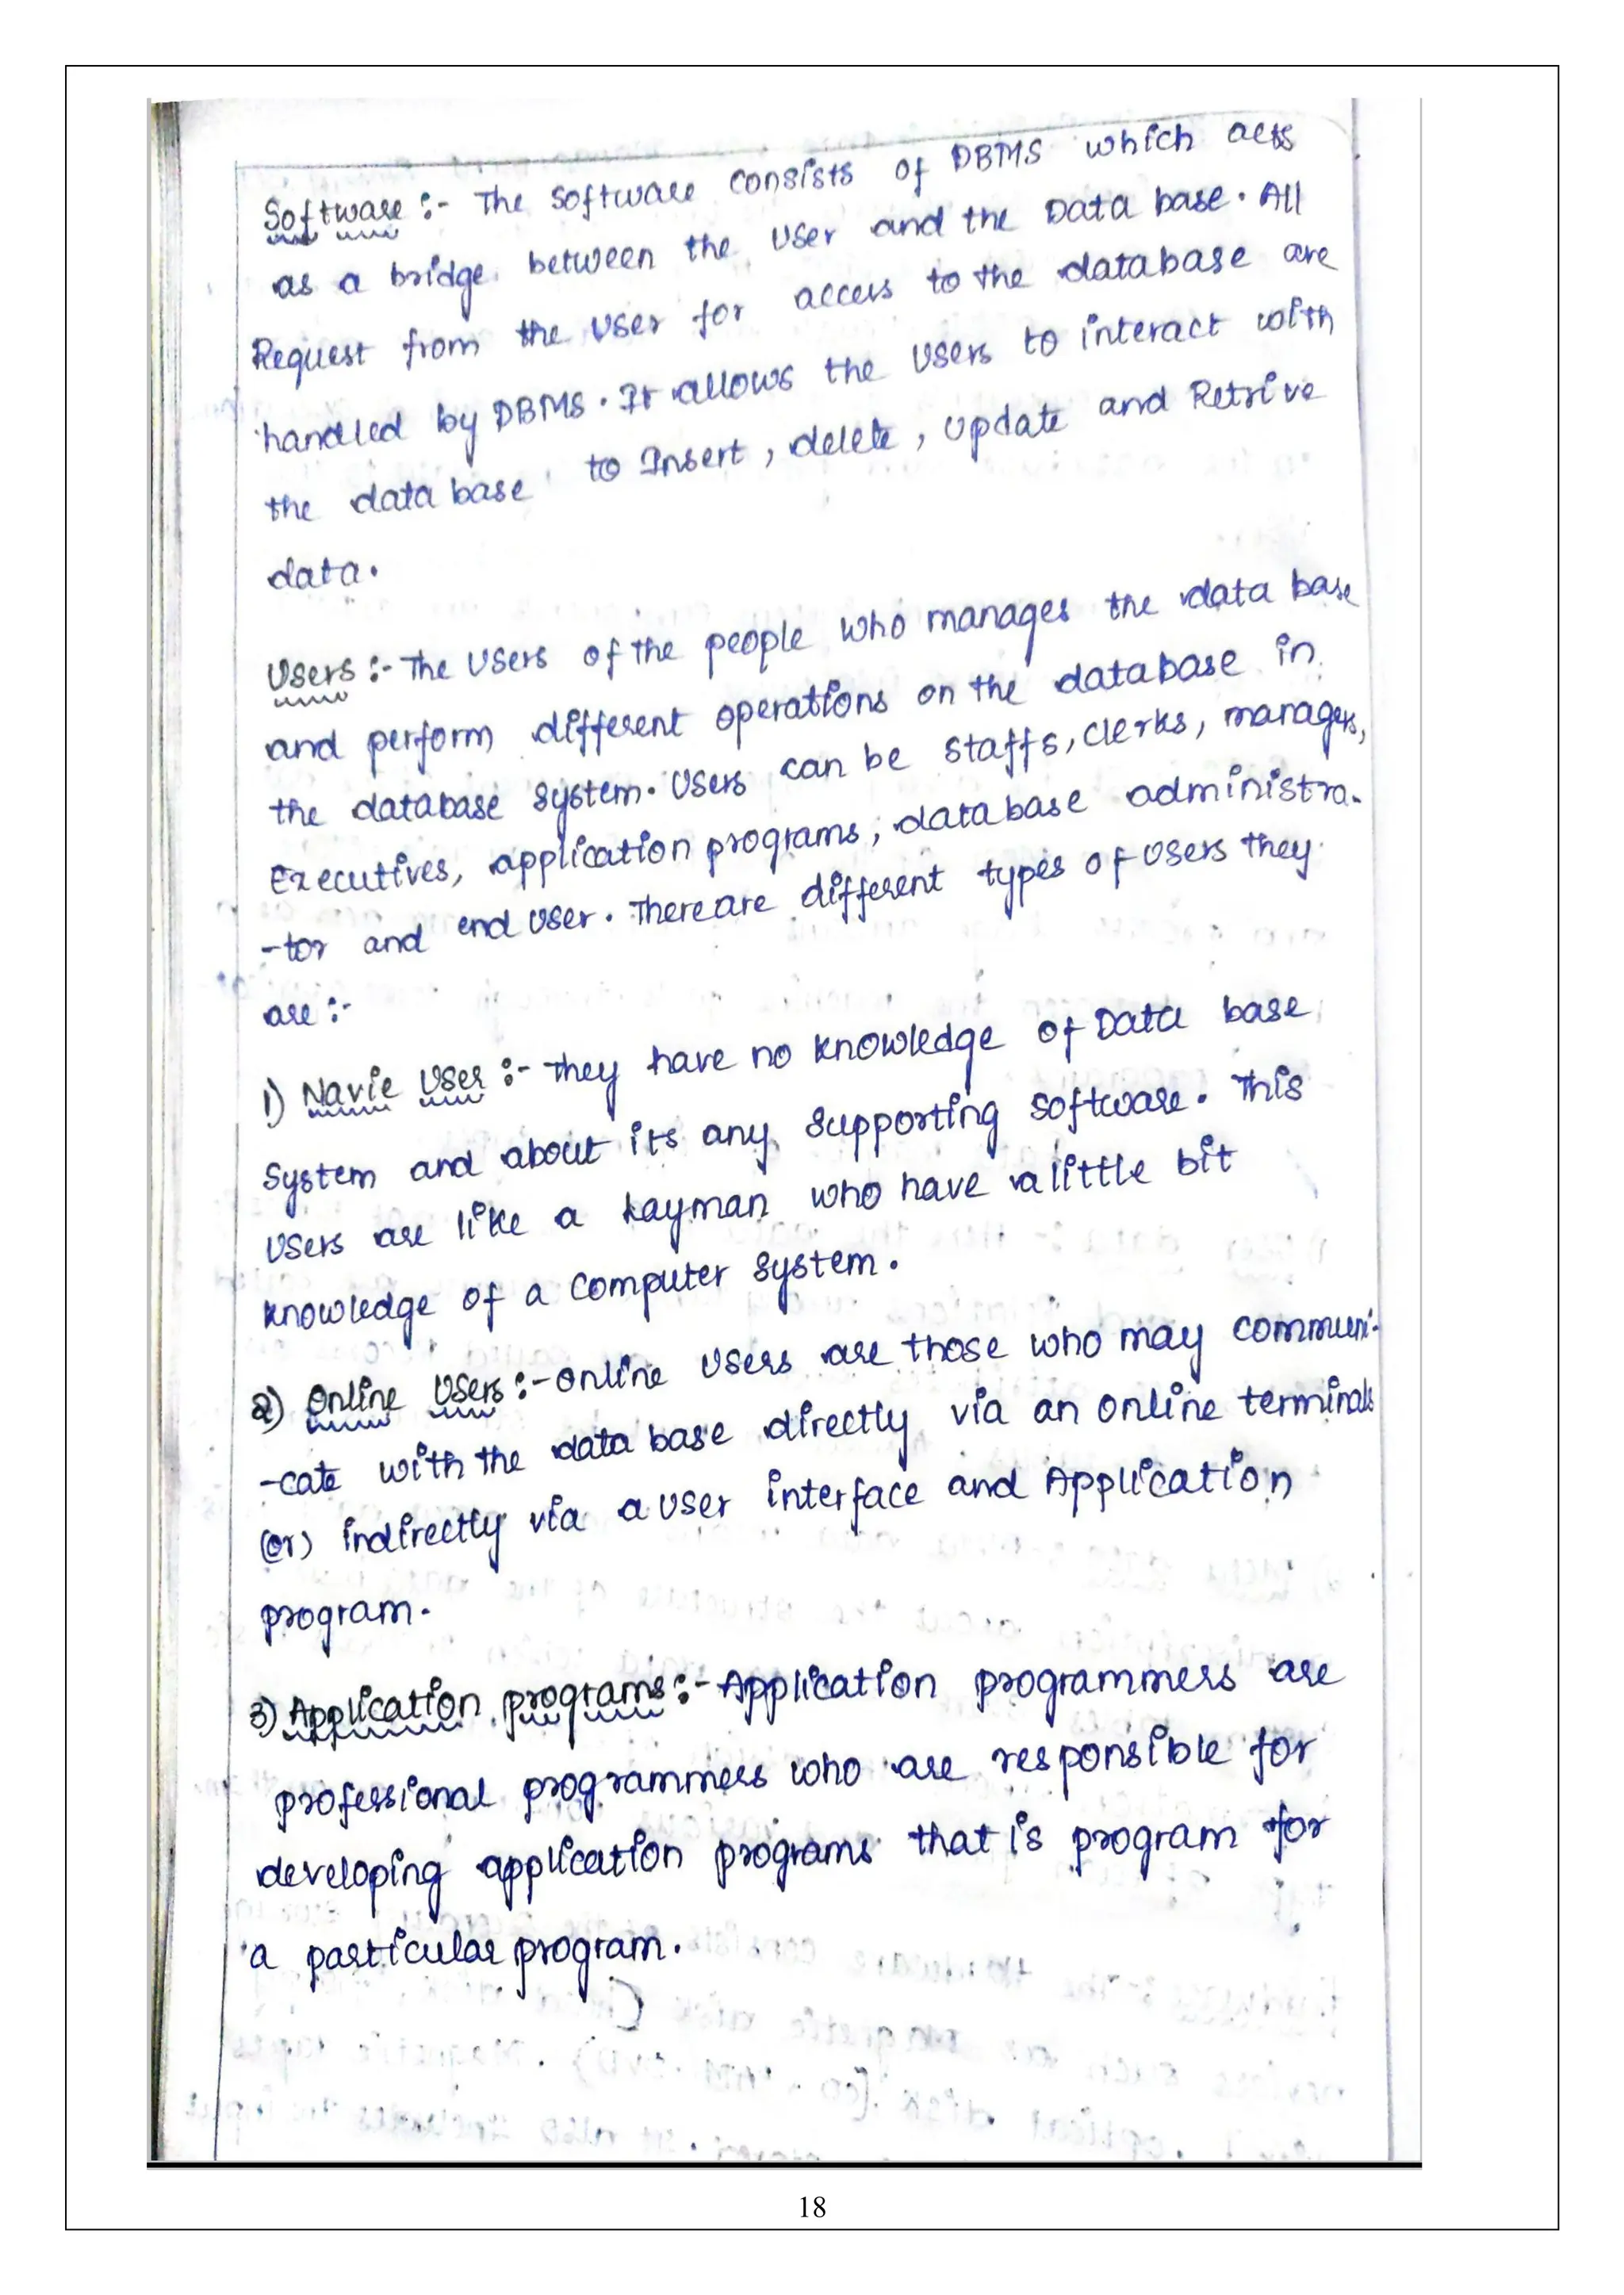 Software :- The Software consists of DBMS which acts
as a bridge between the User and the Data base. All
Request from the User for access to the database are
handled by DBMS. It allows the Users to interact with
the data base to Insert, delete, Update and Retrive
data.
Users :- The Users of the people who manages the data base
and perform different operations on the database in
the database system. Users can be Staffs, Clerks, managers,
Executives, application programs, data base administra-
-tor and end User. There are different types of Users they
are :-
1) Navie User :- They have no knowledge of Data base
System and about its any supporting software. This
Users are like a Layman who have a little bit
knowledge of a Computer System.
2) Online Users :- Online Users are those who may communi-
-cate with the data base directly via an Online terminals
(or) indirectly via a User interface and Application
program.
3) Application programs :- Application programmers are
professional programmers who are responsible for
developing application programs that is program for
a particular program.
18